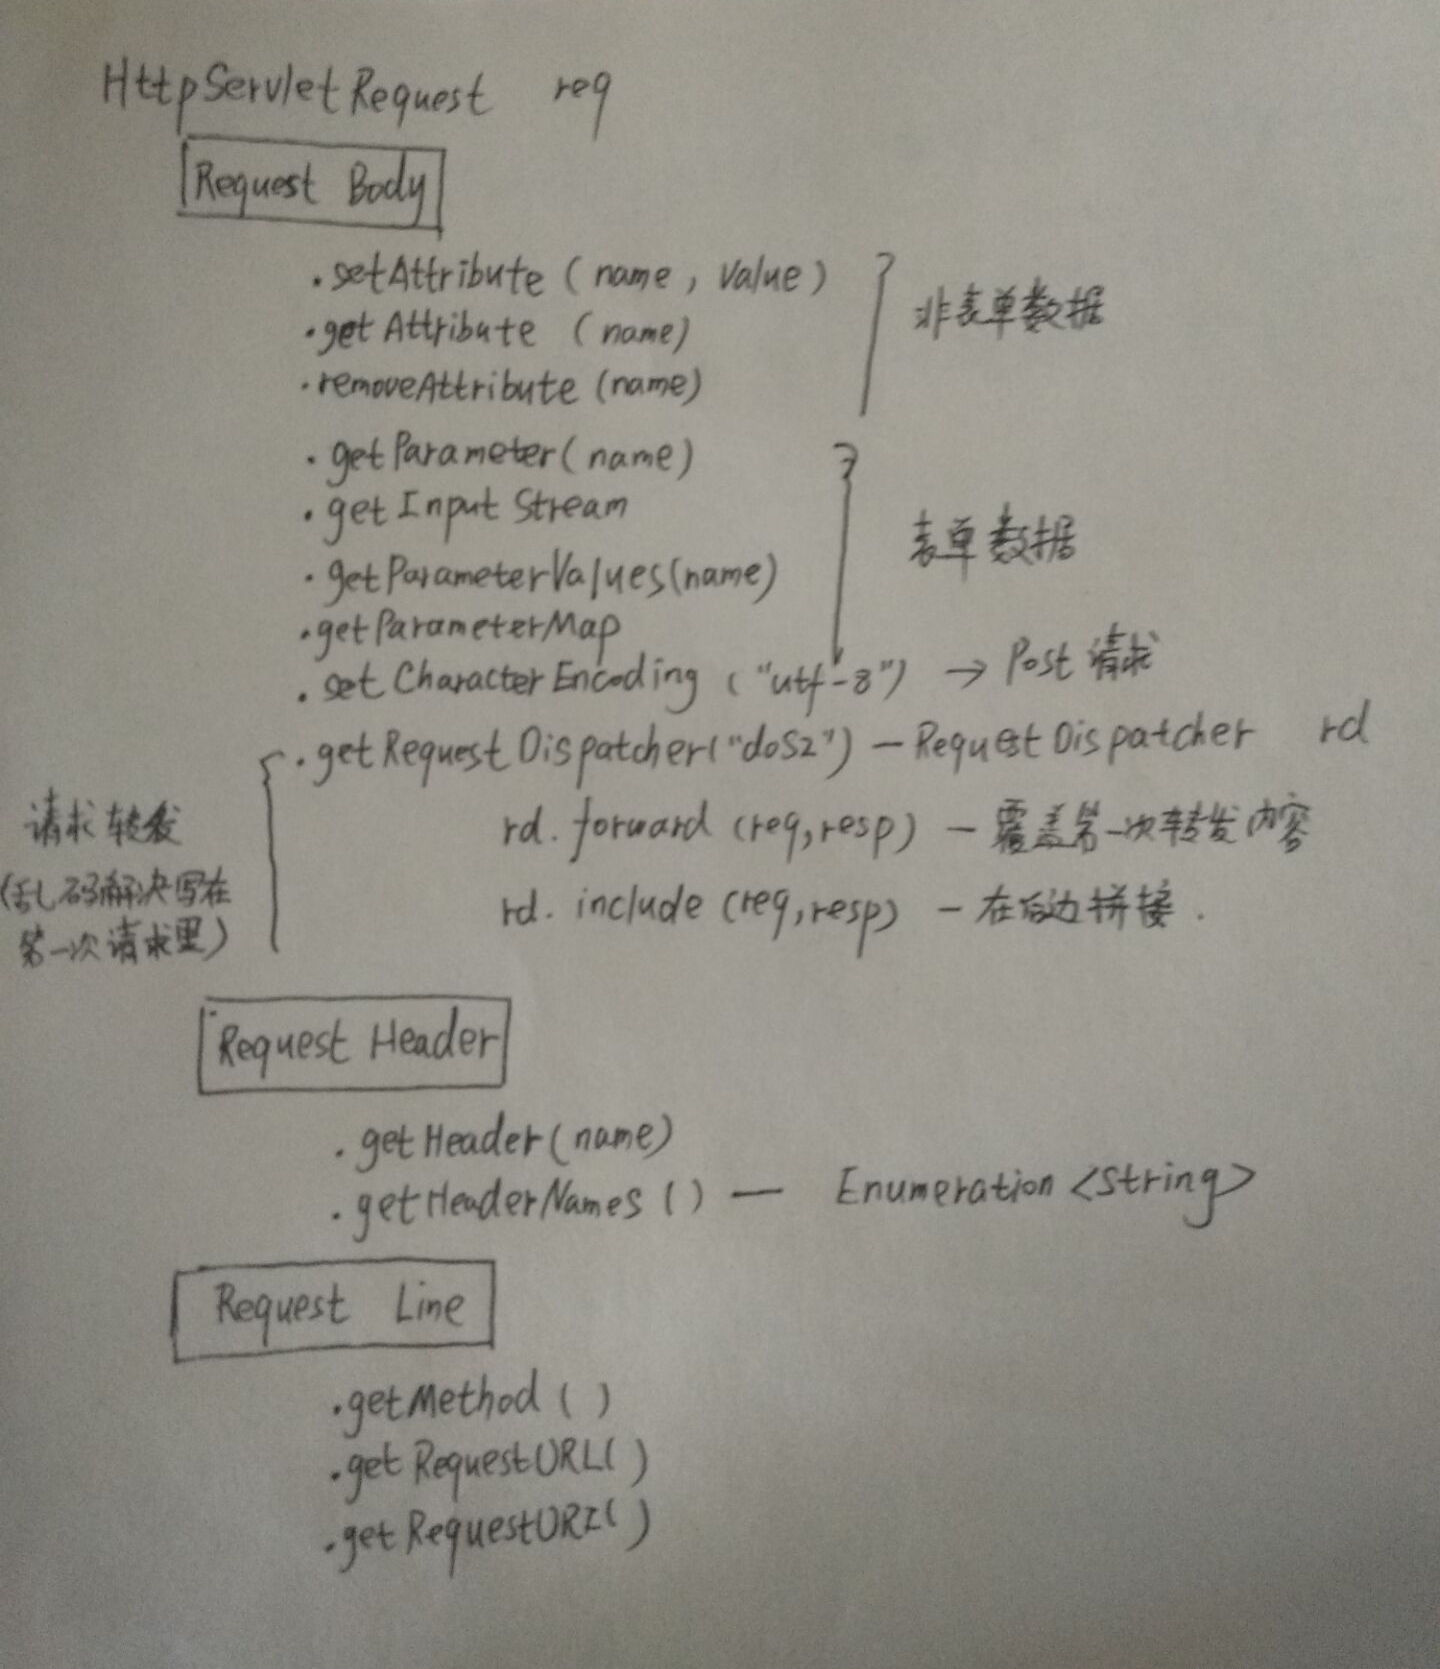 HttpServletRequest req
Request Body
.setAttribute (name, value)
.getAttribute (name)
.removeAttribute (name)
非表单数据
.getParameter(name)
.getInputStream
.getParameterValues(name)
.getParameterMap
表单数据
.setCharacterEncoding ("utf-8") → Post 请求
.getRequestDispatcher("doS2") — RequestDispatcher rd
rd.forward (req,resp) — 覆盖第一次转发内容
rd.include (req,resp) — 在后边拼接.
请求转发
(乱码解决写在
第一次请求里)
Request Header
.getHeader(name)
.getHeaderNames () — Enumeration <String>
Request Line
.getMethod ()
.getRequestURL()
.getRequestURI()